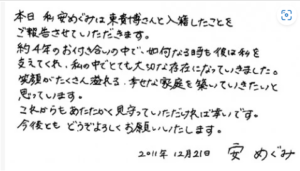 本日 私 安めぐみは東貴博さんと入籍したことを
ご報告させていただきます。
約4年のお付き合いの中で、如何なる時も彼は私を
支えてくれ、私の中でとても大切な存在になっていきました。
笑顔がたくさん溢れる、幸せな家庭を築いていきたいと
思っています。
これからもあたたかく見守っていただければ幸いです。
今後とも どうぞよろしくお願いいたします。
2011年 12月21日 安 めぐみ